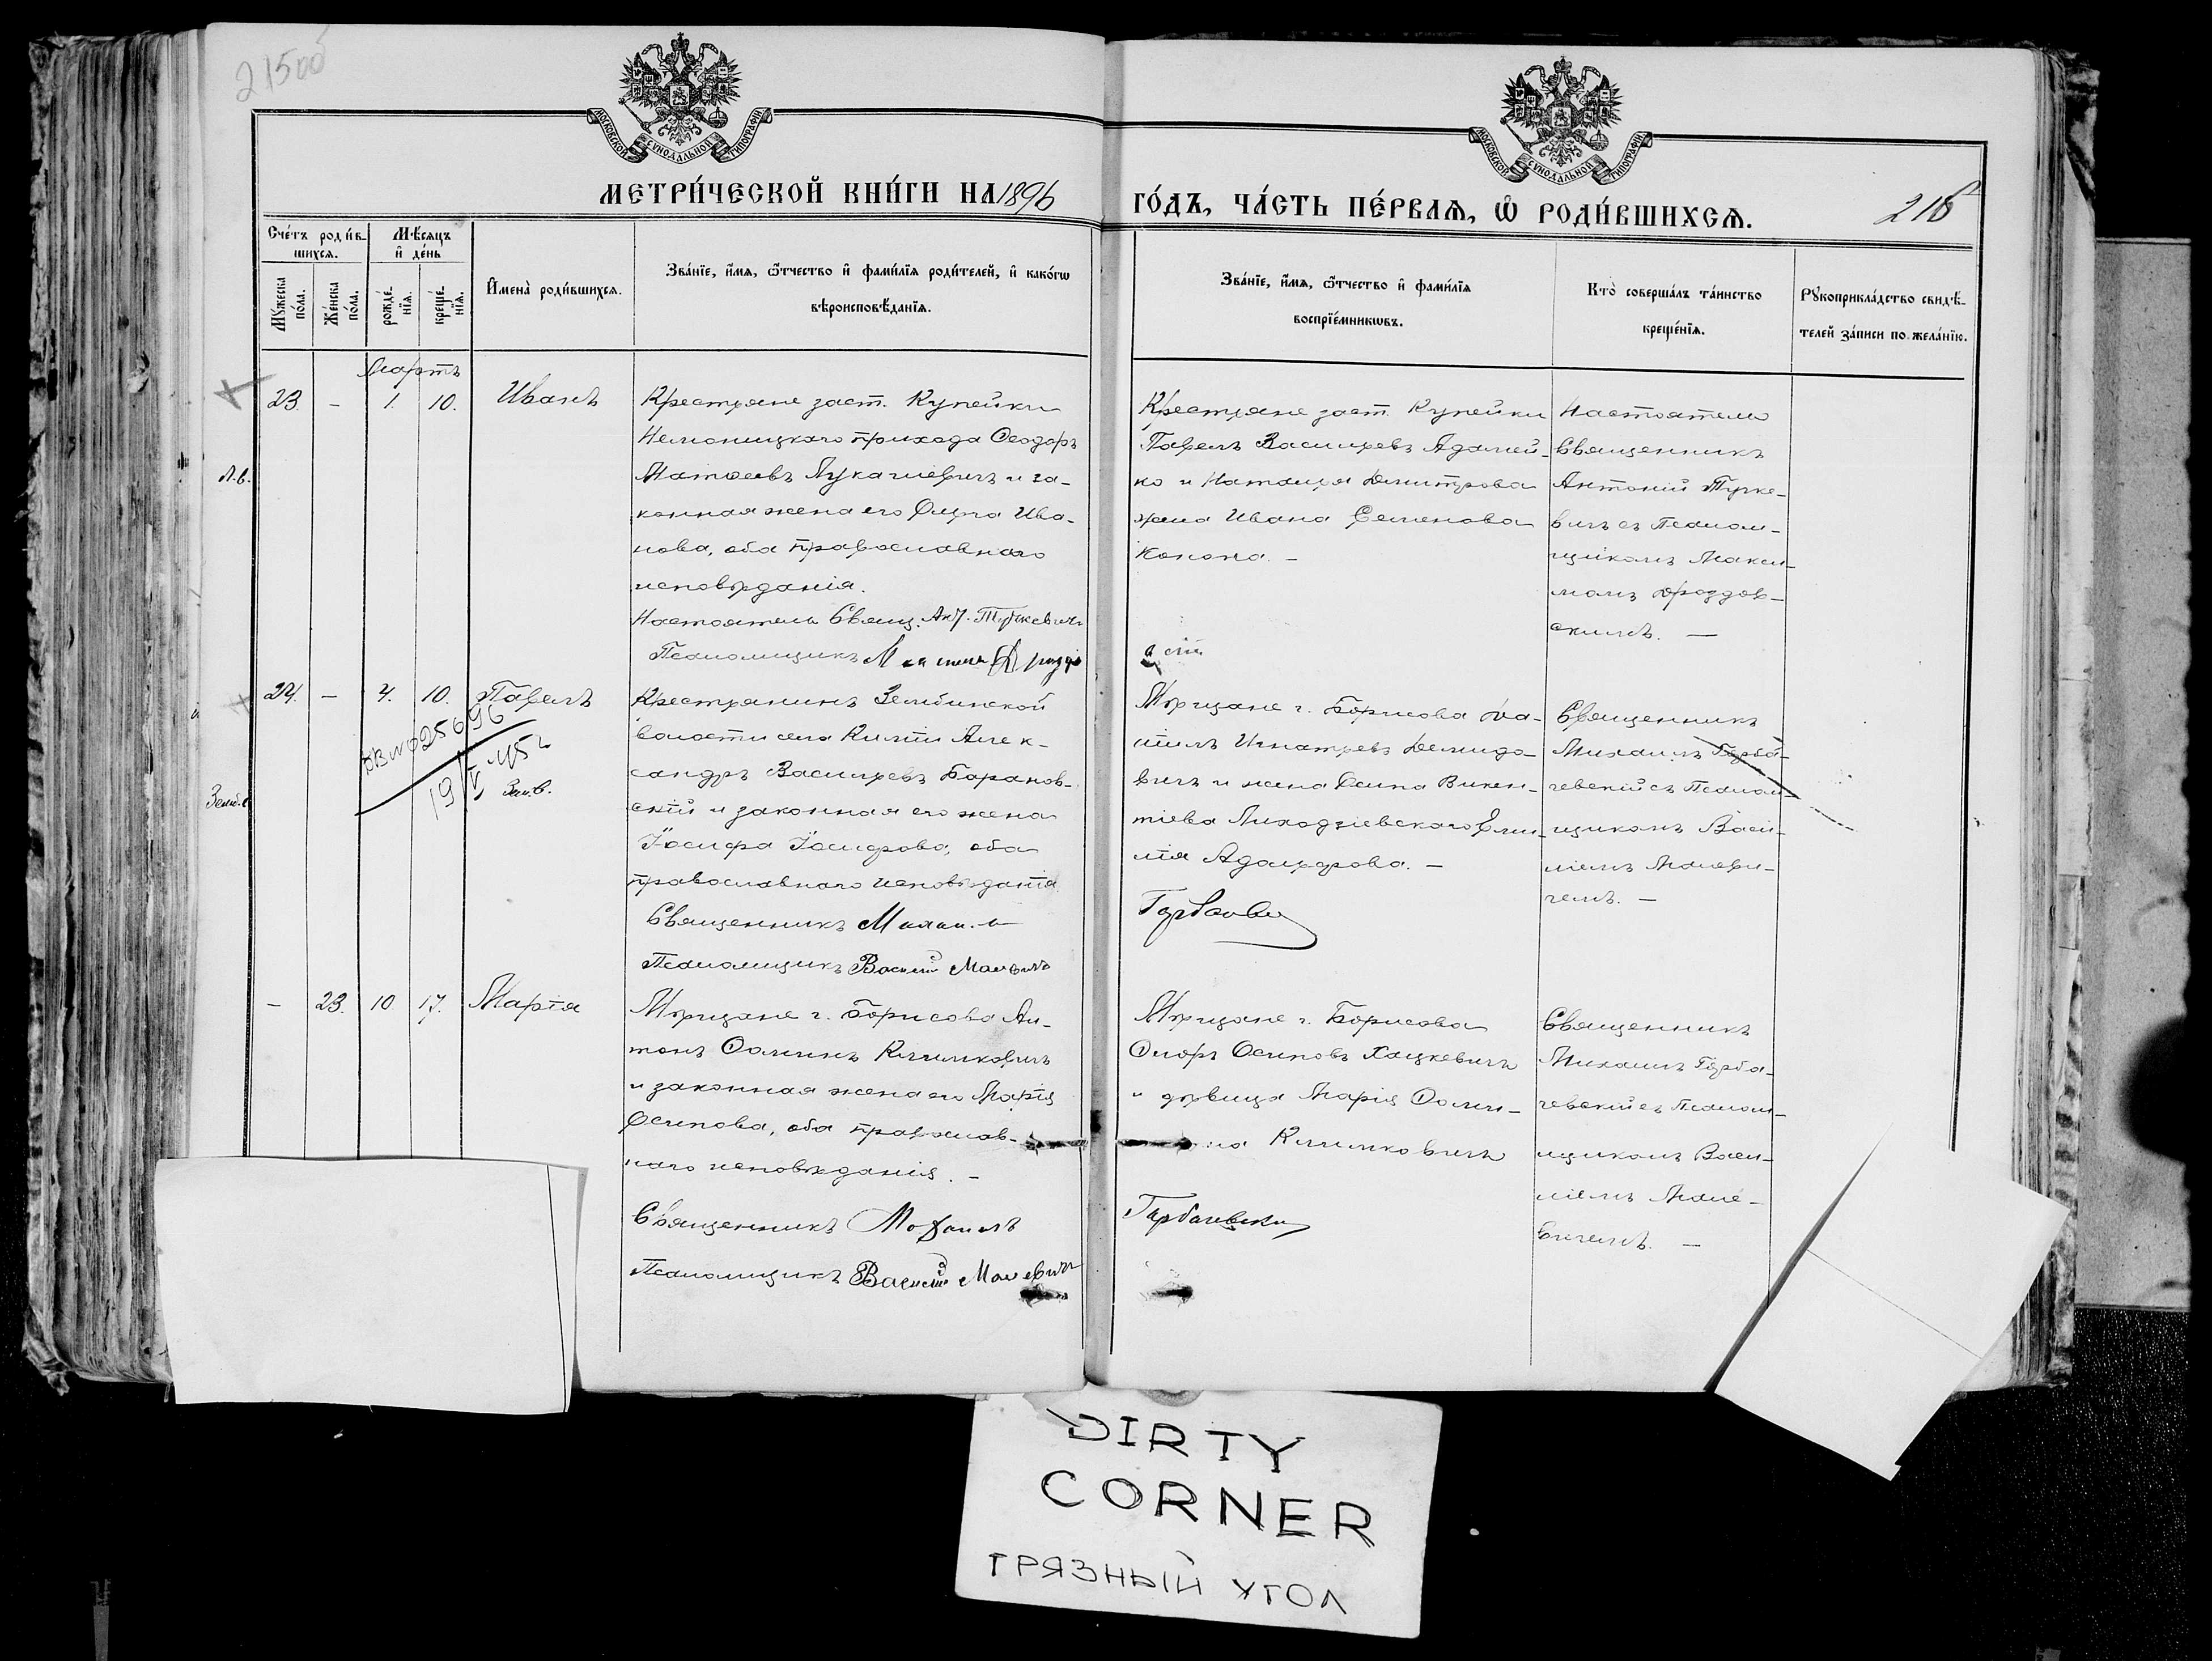 21500
МОСКОВСКОЙ СУНОДАЛЬНОЙ ТИПОГРАФІИ
МОСКОВСКОЙ СУНОДАЛЬНОЙ ТИПОГРАФІИ
МЕТРИ́ЧЕСКОЙ КНИ́ГИ НА 1896
ГО́ДЪ, ЧА́СТЬ ПЕ́РВАѦ, Ѡ҆ РОДИ́ВШИХСѦ.
216
Сче́тъ роди́вшихсѧ.
Мѣ́сѧцъ и҆ де́нь
Мꙋ́жеска по́ла.
Же́нска по́ла.
рожде́нїѧ.
креще́нїѧ.
И҆мена̀ роди́вшихсѧ.
Зва́нїе, и҆́мѧ, ѻ҆́тчество и҆ фами́лїѧ роди́телей, и҆ како́гѡ
вѣроисповѣ́данїѧ.
Зва́нїе, и҆́мѧ, ѻ҆́тчество и҆ фами́лїѧ
воспрїе́мникѡвъ.
Кто̀ соверша́лъ та́инство
креще́нїѧ.
Рꙋкоприкла́дство свидѣ́-
телей за́писи по жела́нїю.
Мартъ
23. - 1. 10. Иванъ
Крестьяне заст. Купейки
Немоницкаго прихода Ѳеодоръ
Матѳеевъ Лукашевичъ и за-
конная жена его Ѳекла Ива-
нова, оба православнаго
исповѣданія.
Настоятель Свящ. Ант. Тучкевичъ
Псаломщикъ
Крестьяне заст. Купейки
Павелъ Васильевъ Адамей-
ко и Наталья Димитрова
жена Ивана Семенова
Конона. -
Настоятель
Священникъ
Антоній Тучке-
вичъ съ Псалом-
щикомъ Макси-
момъ Дроздов-
скимъ. -
Л.в.
24. - 4. 10. Павелъ
19/V 45 г.
Зем.в.
Крестьянинъ Зембинской
волости села Кимги Алек-
сандръ Васильевъ Баранов-
скій и законная его жена
Іосифа Іосифова, оба
православнаго исповѣданія
Священникъ Михаилъ
Псаломщикъ Василій Малевичъ
Мѣщане г. Борисова
Игнатьевъ Демидо-
вичъ и жена Викен-
тіева Лиходзіевскаго Эми-
лія Адольфова. -
Горбачевскій
Священникъ
Михаилъ Горба-
чевскій съ Псалом-
щикомъ Васи-
ліемъ Малеви-
чемъ. -
- 23. 10. 17. Марія
Мѣщане г. Борисова Ан-
тонъ Ѳоминъ Климковичъ
и законная жена его Марія
Осипова, оба православ-
наго исповѣданія. -
Священникъ Михаилъ
Псаломщикъ Василій Малевичъ
Мѣщане г. Борисова
Осиповъ Хацкевичъ
и дѣвица Марія Ѳоми-
на Климковичъ
Горбачевскій
Священникъ
Михаилъ Горба-
чевскій съ Псалом-
щикомъ Васи-
ліемъ Мале-
вичемъ. -
DIRTY
CORNER
ГРЯЗНЫЙ УГОЛ